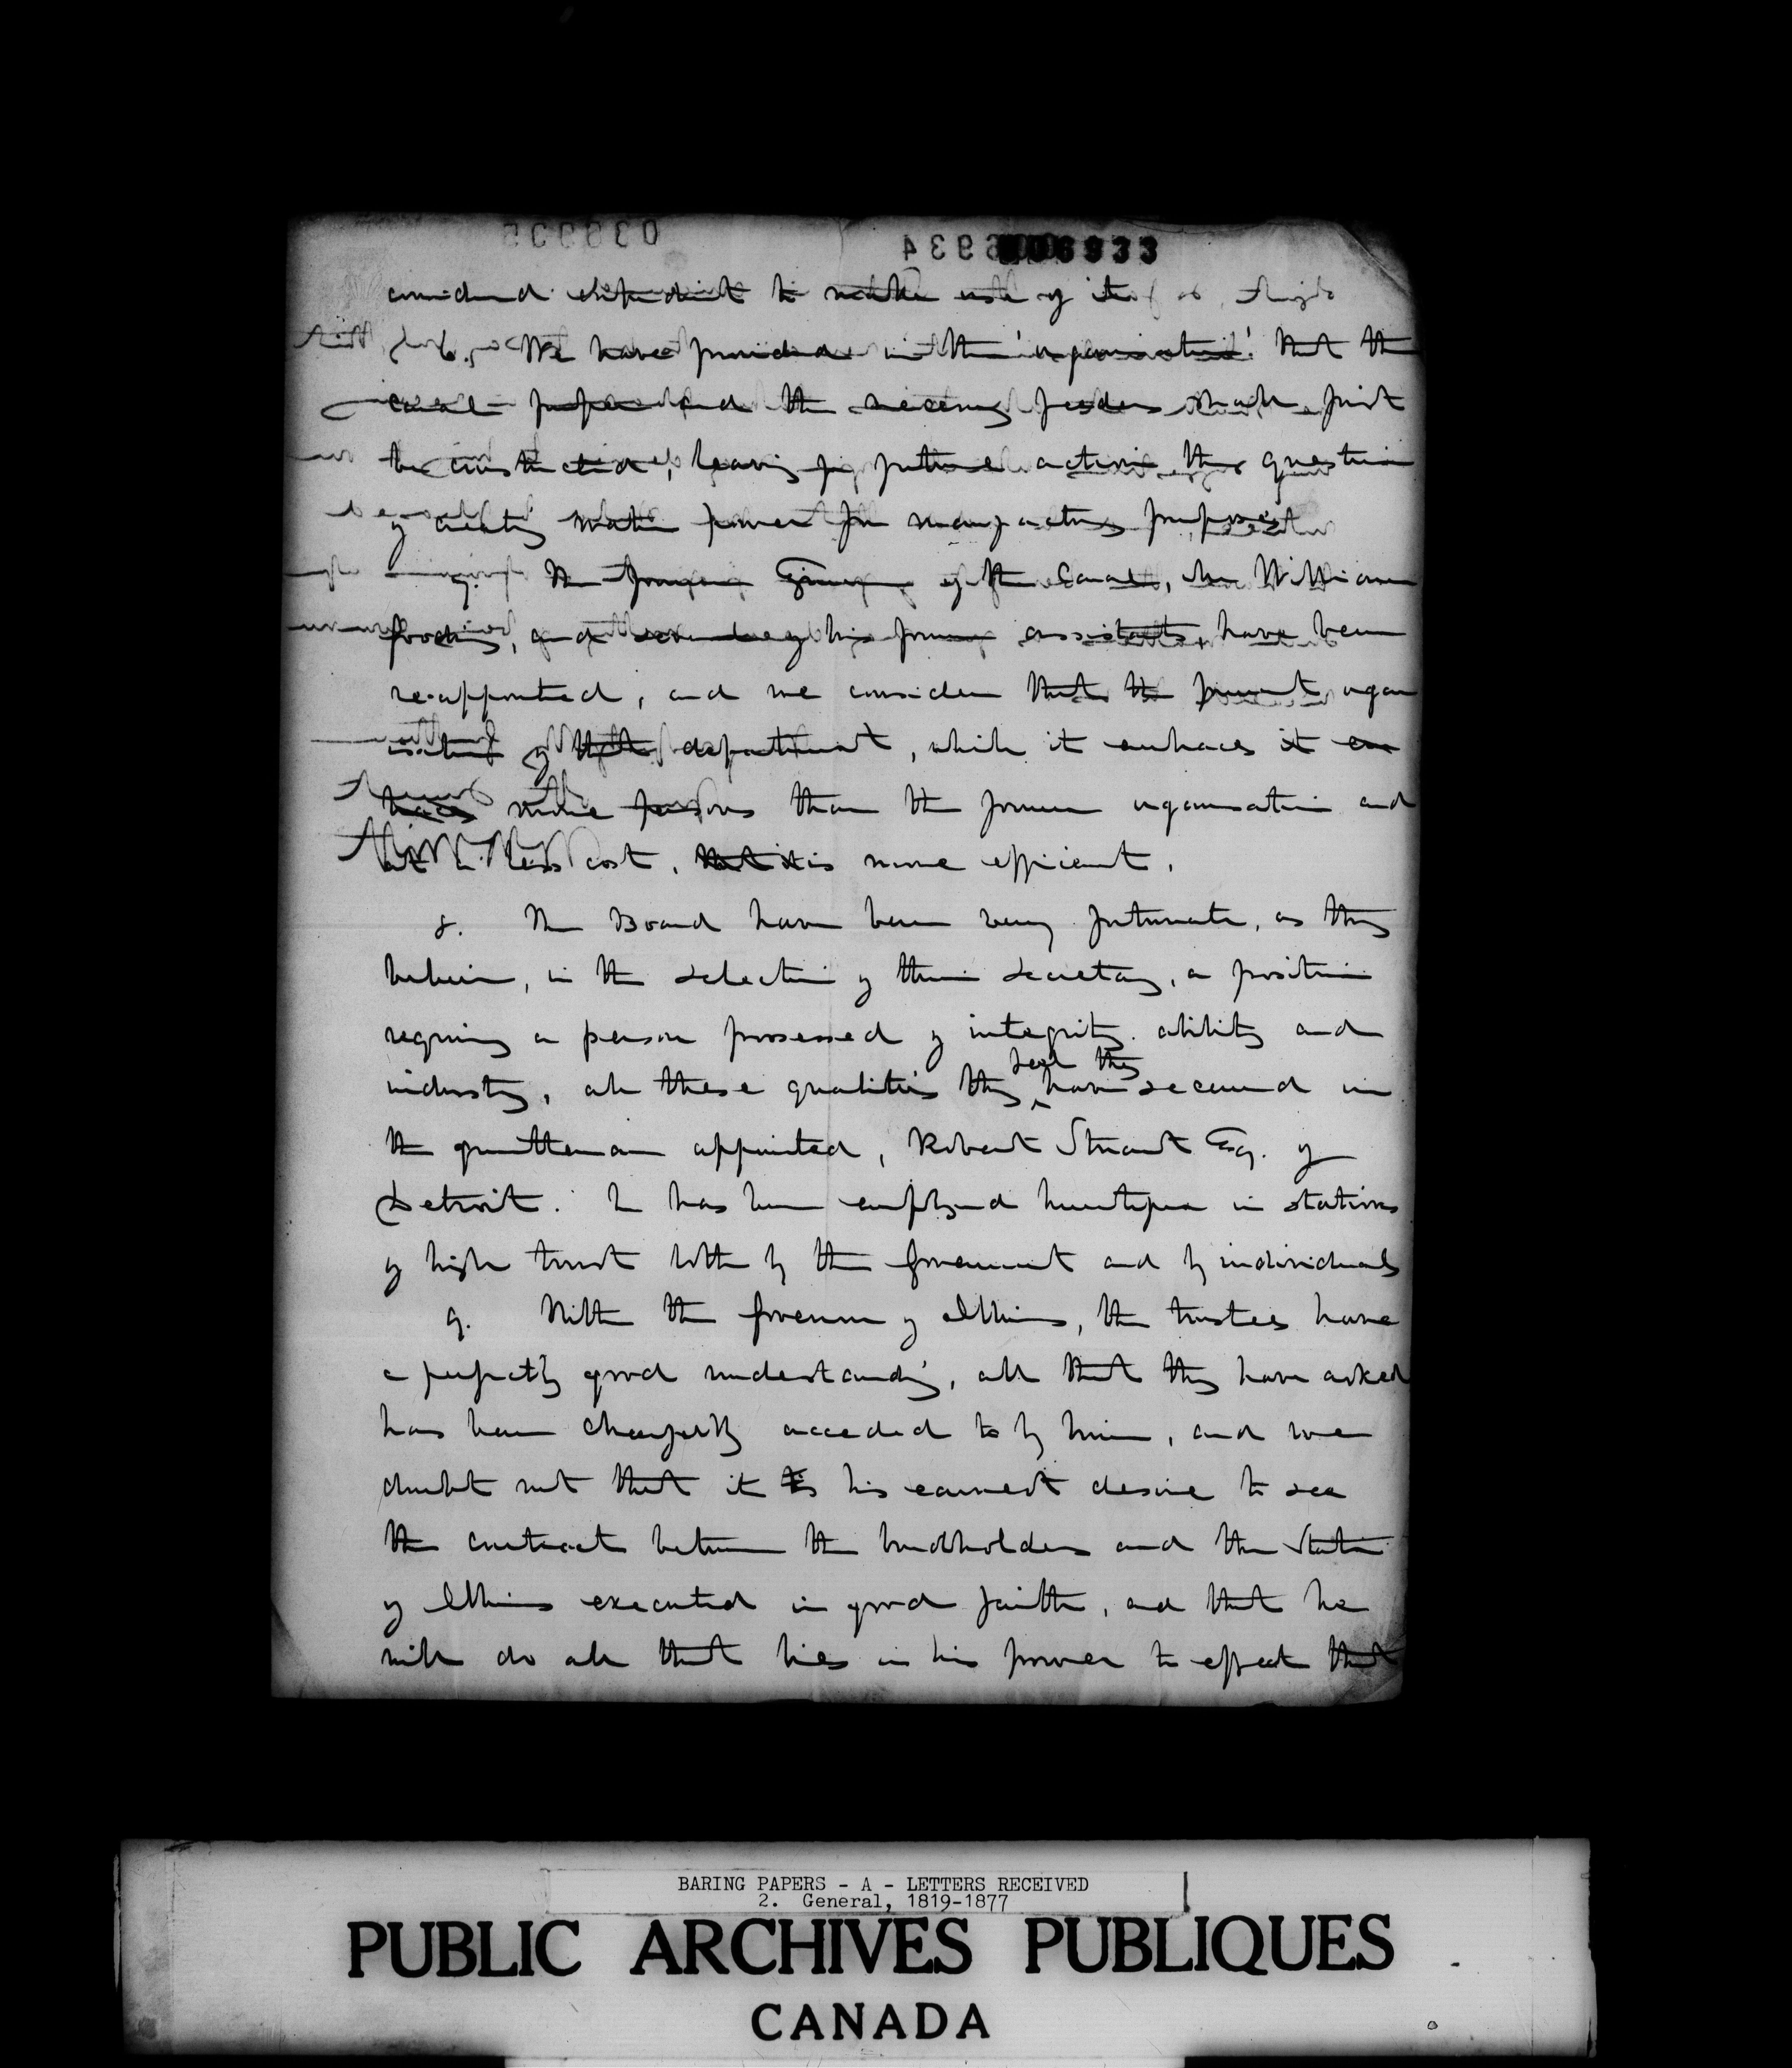 006933
considered expedient to make use of it.
6. We have provided in the 'organisation' that the
canal proper and the necessary feeders shall first
be constructed, leaving for future action the question
of creating water power for manufacturing purposes
7. The former Engineer of the Canal, Mr William
Gooding, and several of his former assistants, have been
re-appointed, and we consider that the present organ
isation of that department, while it embraces it em
braces more persons than the former organisation and
at a less cost, that it is more efficient.
8. The Board have been very fortunate, as they
believe, in the selection of their Secretary, a position
requiring a person possessed of integrity ability and
feel they
industry, all these qualities they have secured in
the gentleman appointed, Robert Stuart Esq. of
Detroit. He has been employed heretofore in stations
of high trust both by the government and by individuals
9. With the governor of Illinois, the trustees have
a perfectly good understanding, all that they have asked
has been cheerfully acceded to by him, and we
doubt not that it is his earnest desire to see
the contract between the bondholders and the State
of Illinois executed in good faith, and that he
will do all that lies in his power to effect that
BARING PAPERS - A - LETTERS RECEIVED
2. General, 1819-1877
PUBLIC ARCHIVES PUBLIQUES
CANADA